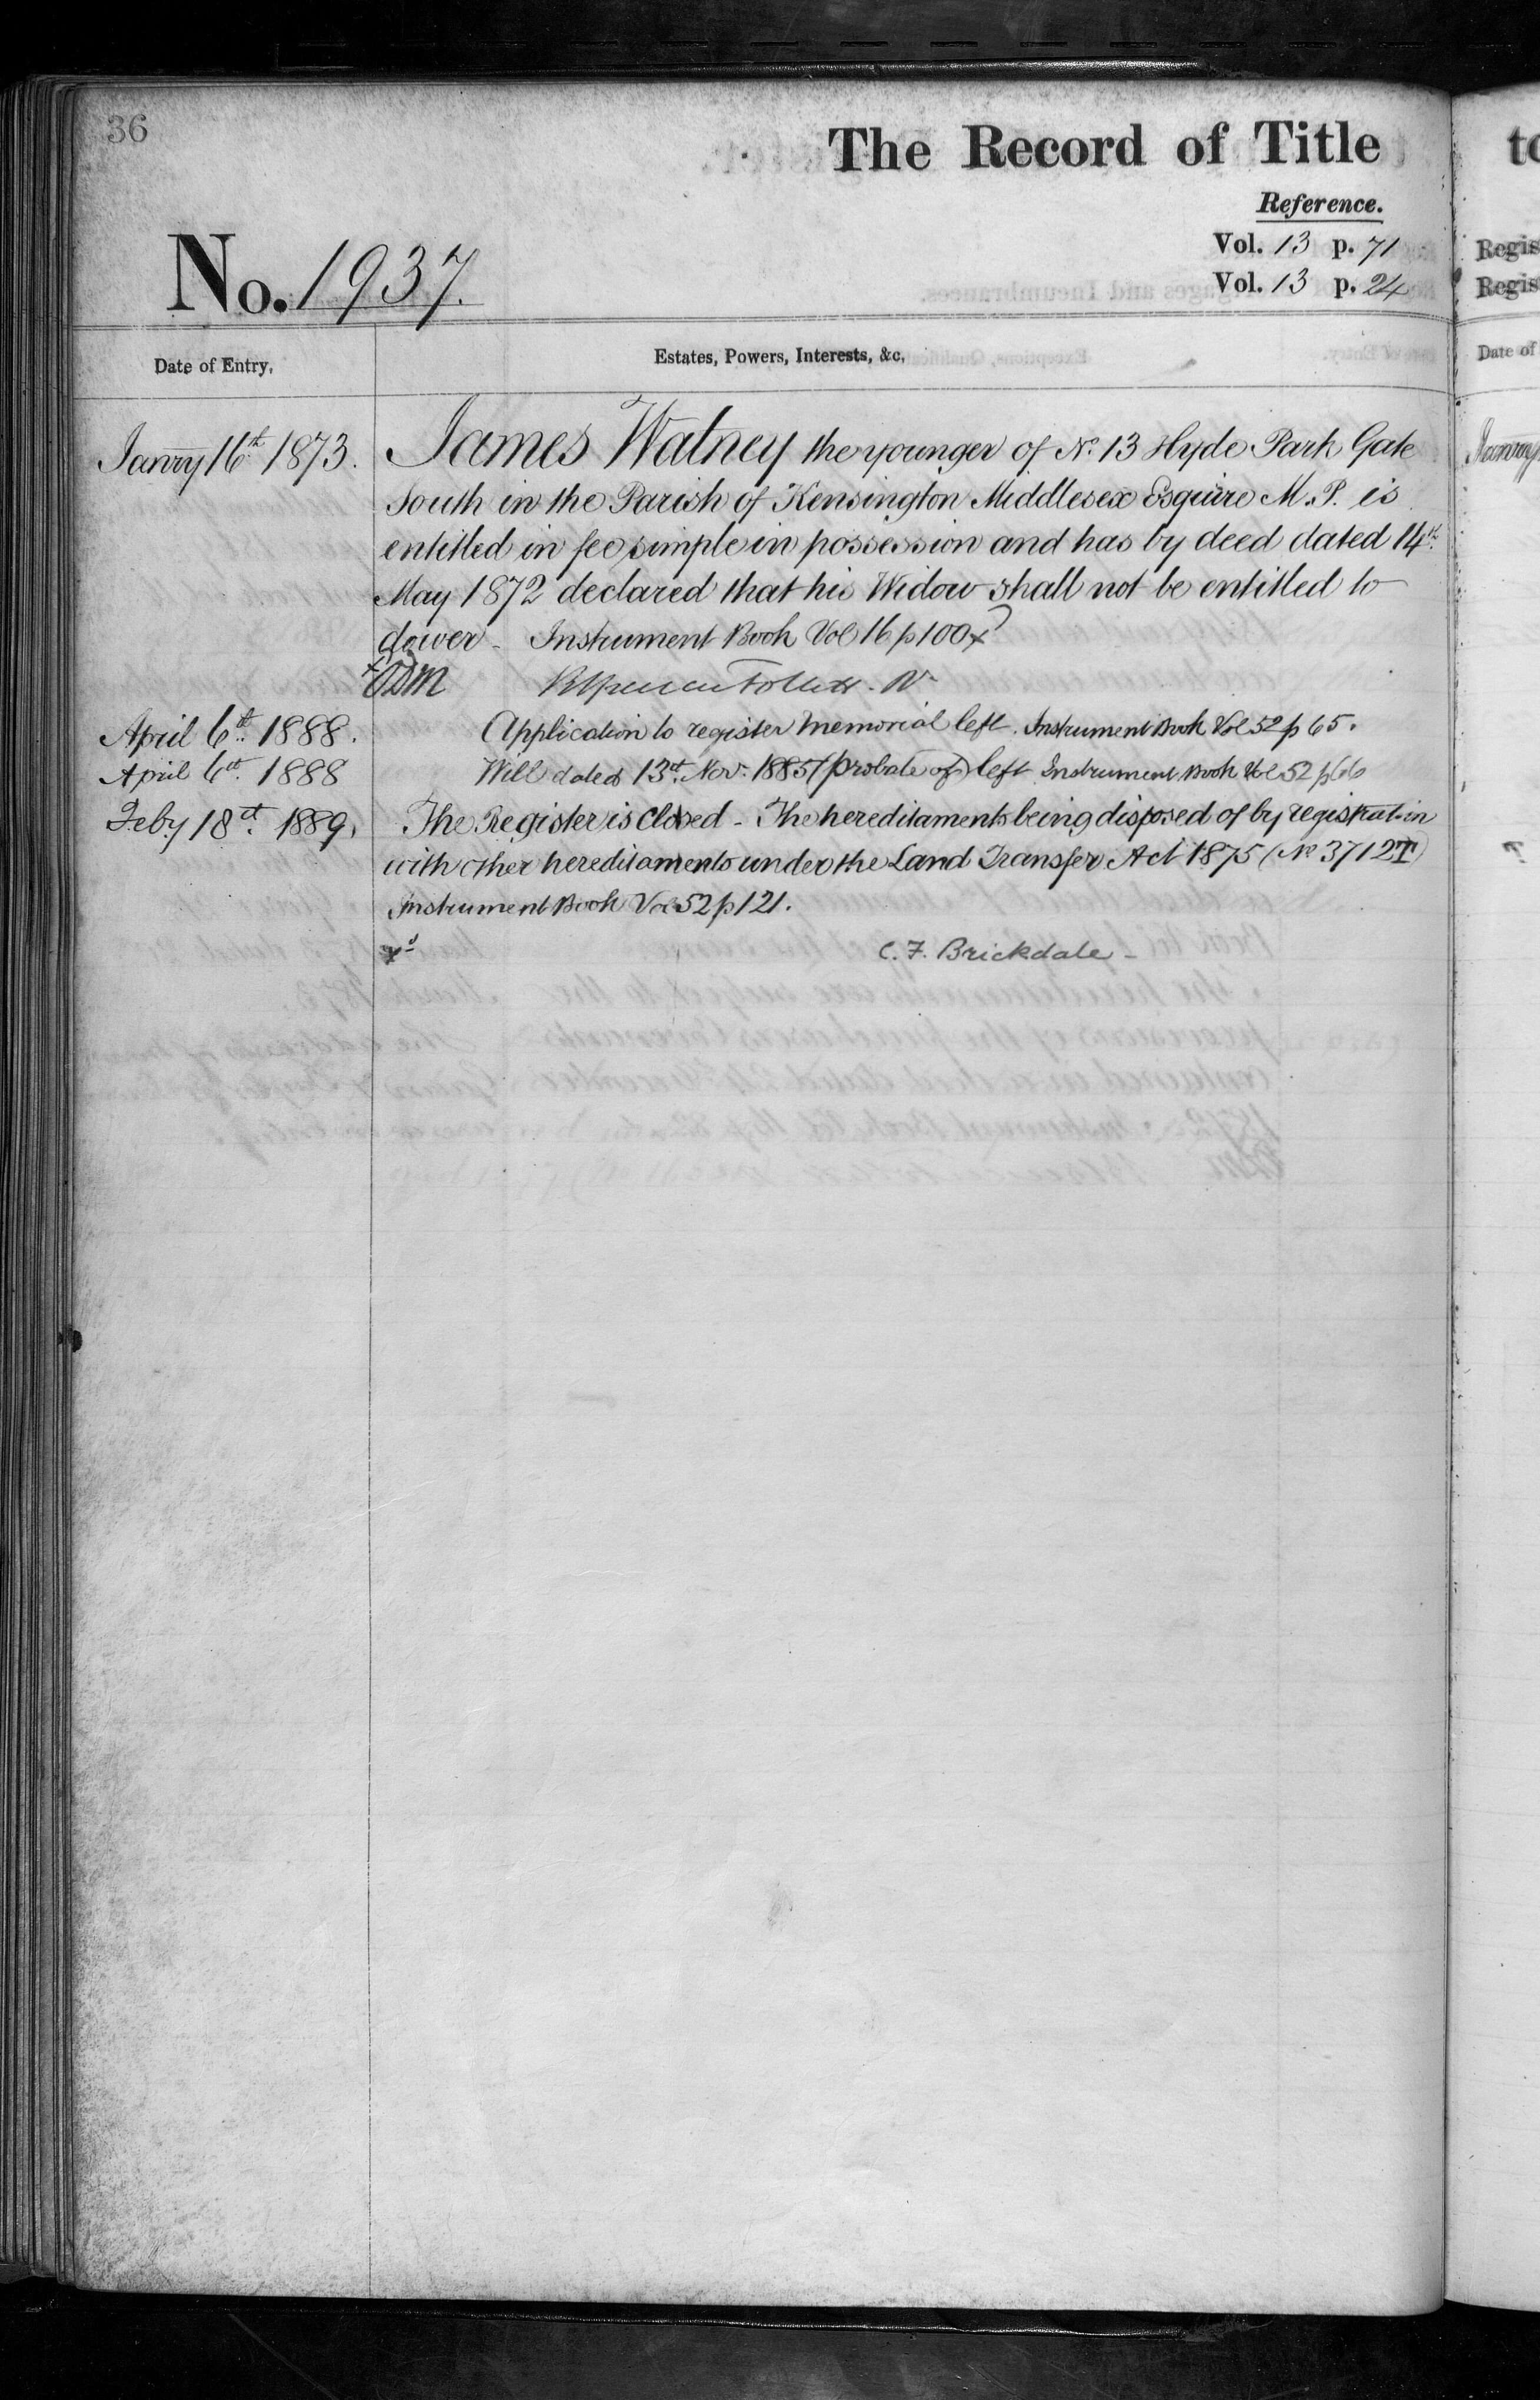 36
The Record of Title
Reference.
Vol. 13 p. 71
Vol. 13 p. 24
No. 1937.
Date of Entry.
Estates, Powers, Interests, &c.
Janry 16th 1873.
James Watney the younger of No. 13 Hyde Park Gate
South in the Parish of Kensington Middlesex Esquire M.P. is
entitled in fee simple in possession and has by deed dated 14th
May 1872 declared that his Widow shall not be entitled to
dower - Instrument Book Vol 16 p 100x
Follett
April 6th 1888. Application to register memorial left. Instrument Book Vol 52 p 65.
April 6th 1888 Will dated 13th Nov: 1885 (probate of) left Instrument Book Vol 52 p 66
Feby 18th 1889. The Register is Closed - The hereditaments being disposed of by registration
with other hereditaments under the Land Transfer Act 1875 (No 3712T)
Instrument Book Vol 52 p 121.
C. F. Brickdale -
to
Regis
Regis
Date of